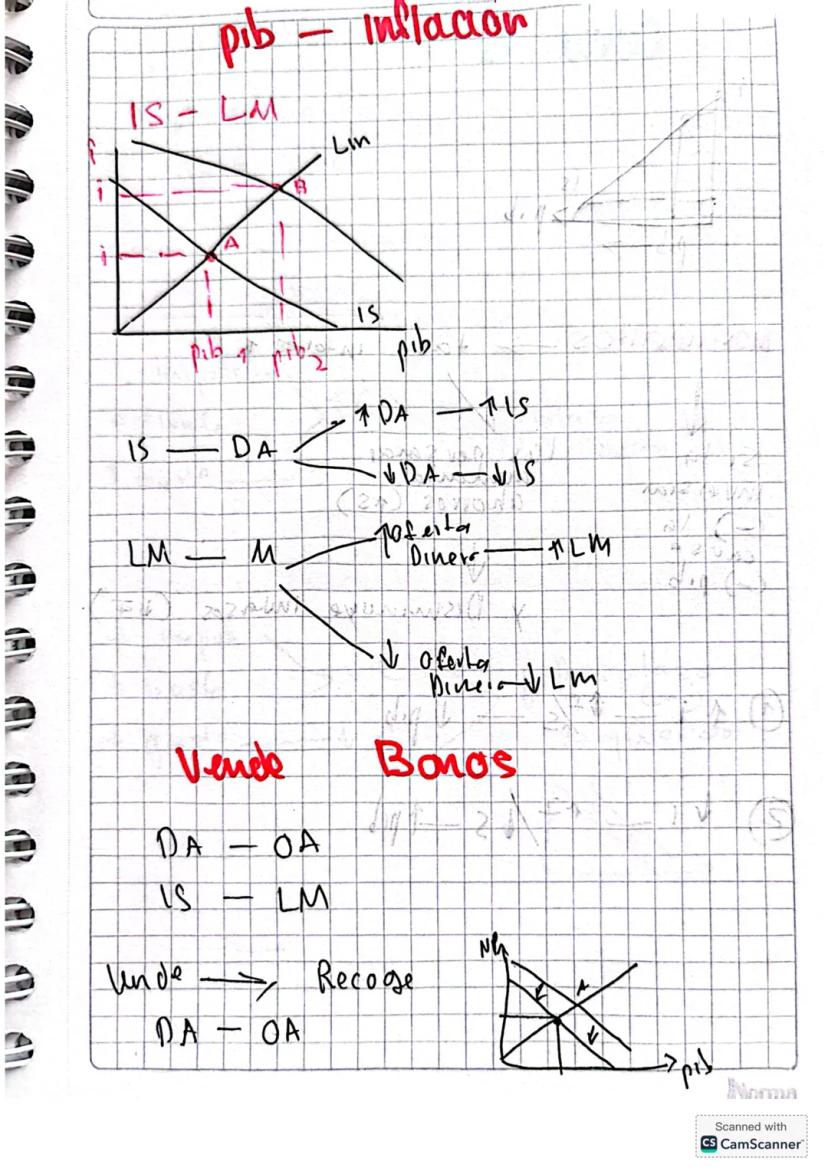 pib - Inflacion
IS - LM
Lm
i
B
i
A
IS
pib 1 pib 2 pib
IS — DA
↑ DA — ↑ IS
↓ DA — ↓ IS
LM — M
↑ Oferta
Dinero — ↑ LM
↓ Oferta
Dinero — ↓ Lm
Vende Bonos
DA - OA
IS - LM
Vende → Recoge
DA - OA
A
→ pib
Norma
Scanned with
CS CamScanner